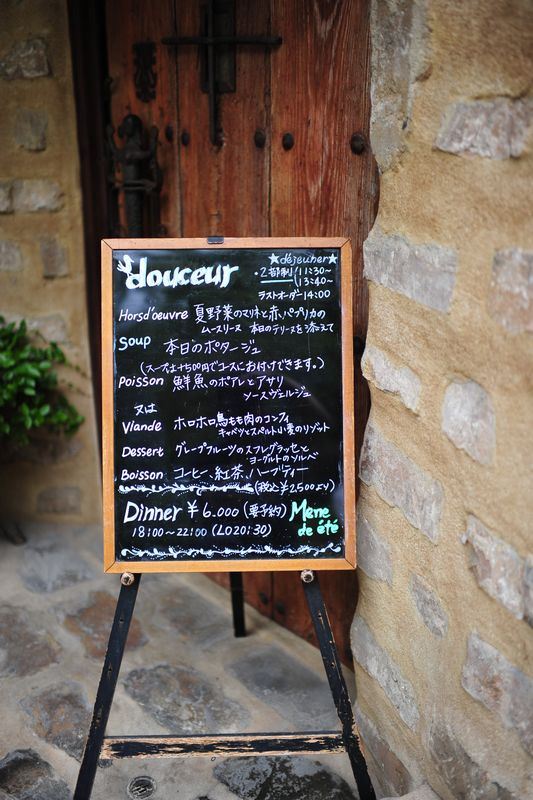 douceur
★déjeuner★
・2部制 11:30~
13:40~
ラストオーダー14:00
Horsd'oeuvre 夏野菜のマリネと赤パプリカの
ムースリーヌ 本日のテリーヌを添えて
Soup 本日のポタージュ
(スープは+500円でコースにお付けできます。)
Poisson 鮮魚のポアレとアサリ
ソースヴェルジュ
又は
Viande ホロホロ鳥もも肉のコンフィ
キャベツとスペルト小麦のリゾット
Dessert グレープフルーツのスフレグラッセと
ヨーグルトのソルベ
Boisson コーヒー、紅茶、ハーブティー
(税込¥2,500より)
Dinner ¥6.000 (要予約)
18:00~22:00 (LO20:30)
Mene
de été